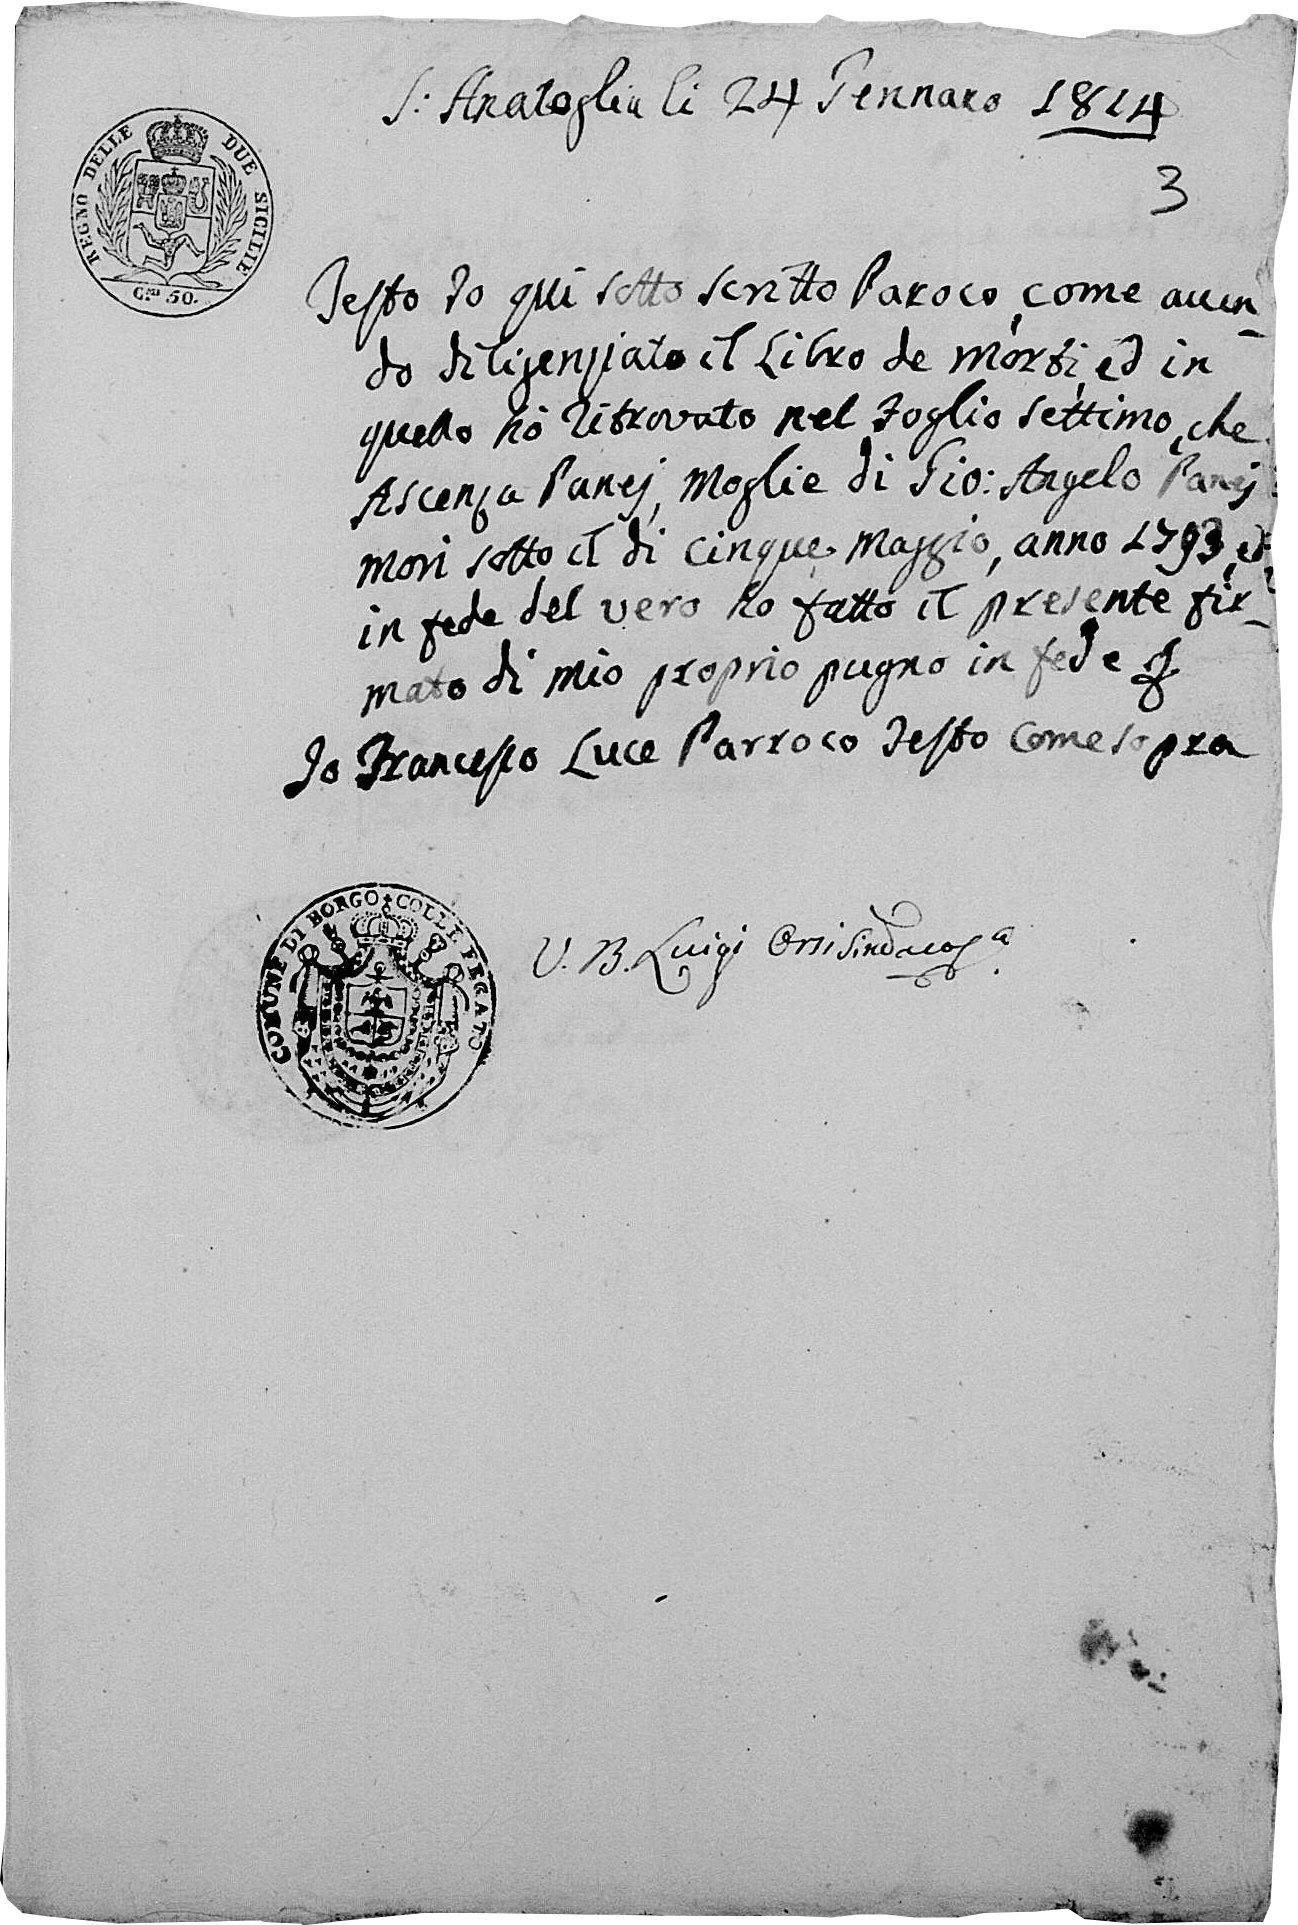 S: Anatoglia li 24 Gennaro 1814
REGNO DELLE DUE SICILIE
C.mi 50.
3
Testo Io qui sotto scritto Paroco, come auen-
do diligenziato il Libro de morti, ed in
quello hò ritrovato nel Foglio settimo, che
Ascenza Panej, Moglie di Gio: Angelo Panej
morì sotto il dì cinque Maggio, anno 1793, ed
in fede del vero ho fatto il presente fir-
mato di mio proprio pugno in fede
Io Francesco Luce Parroco Testo come sopra
COMUNE DI BORGO COLLE FEGATO
V. B. Luigi Orsi Sindaco